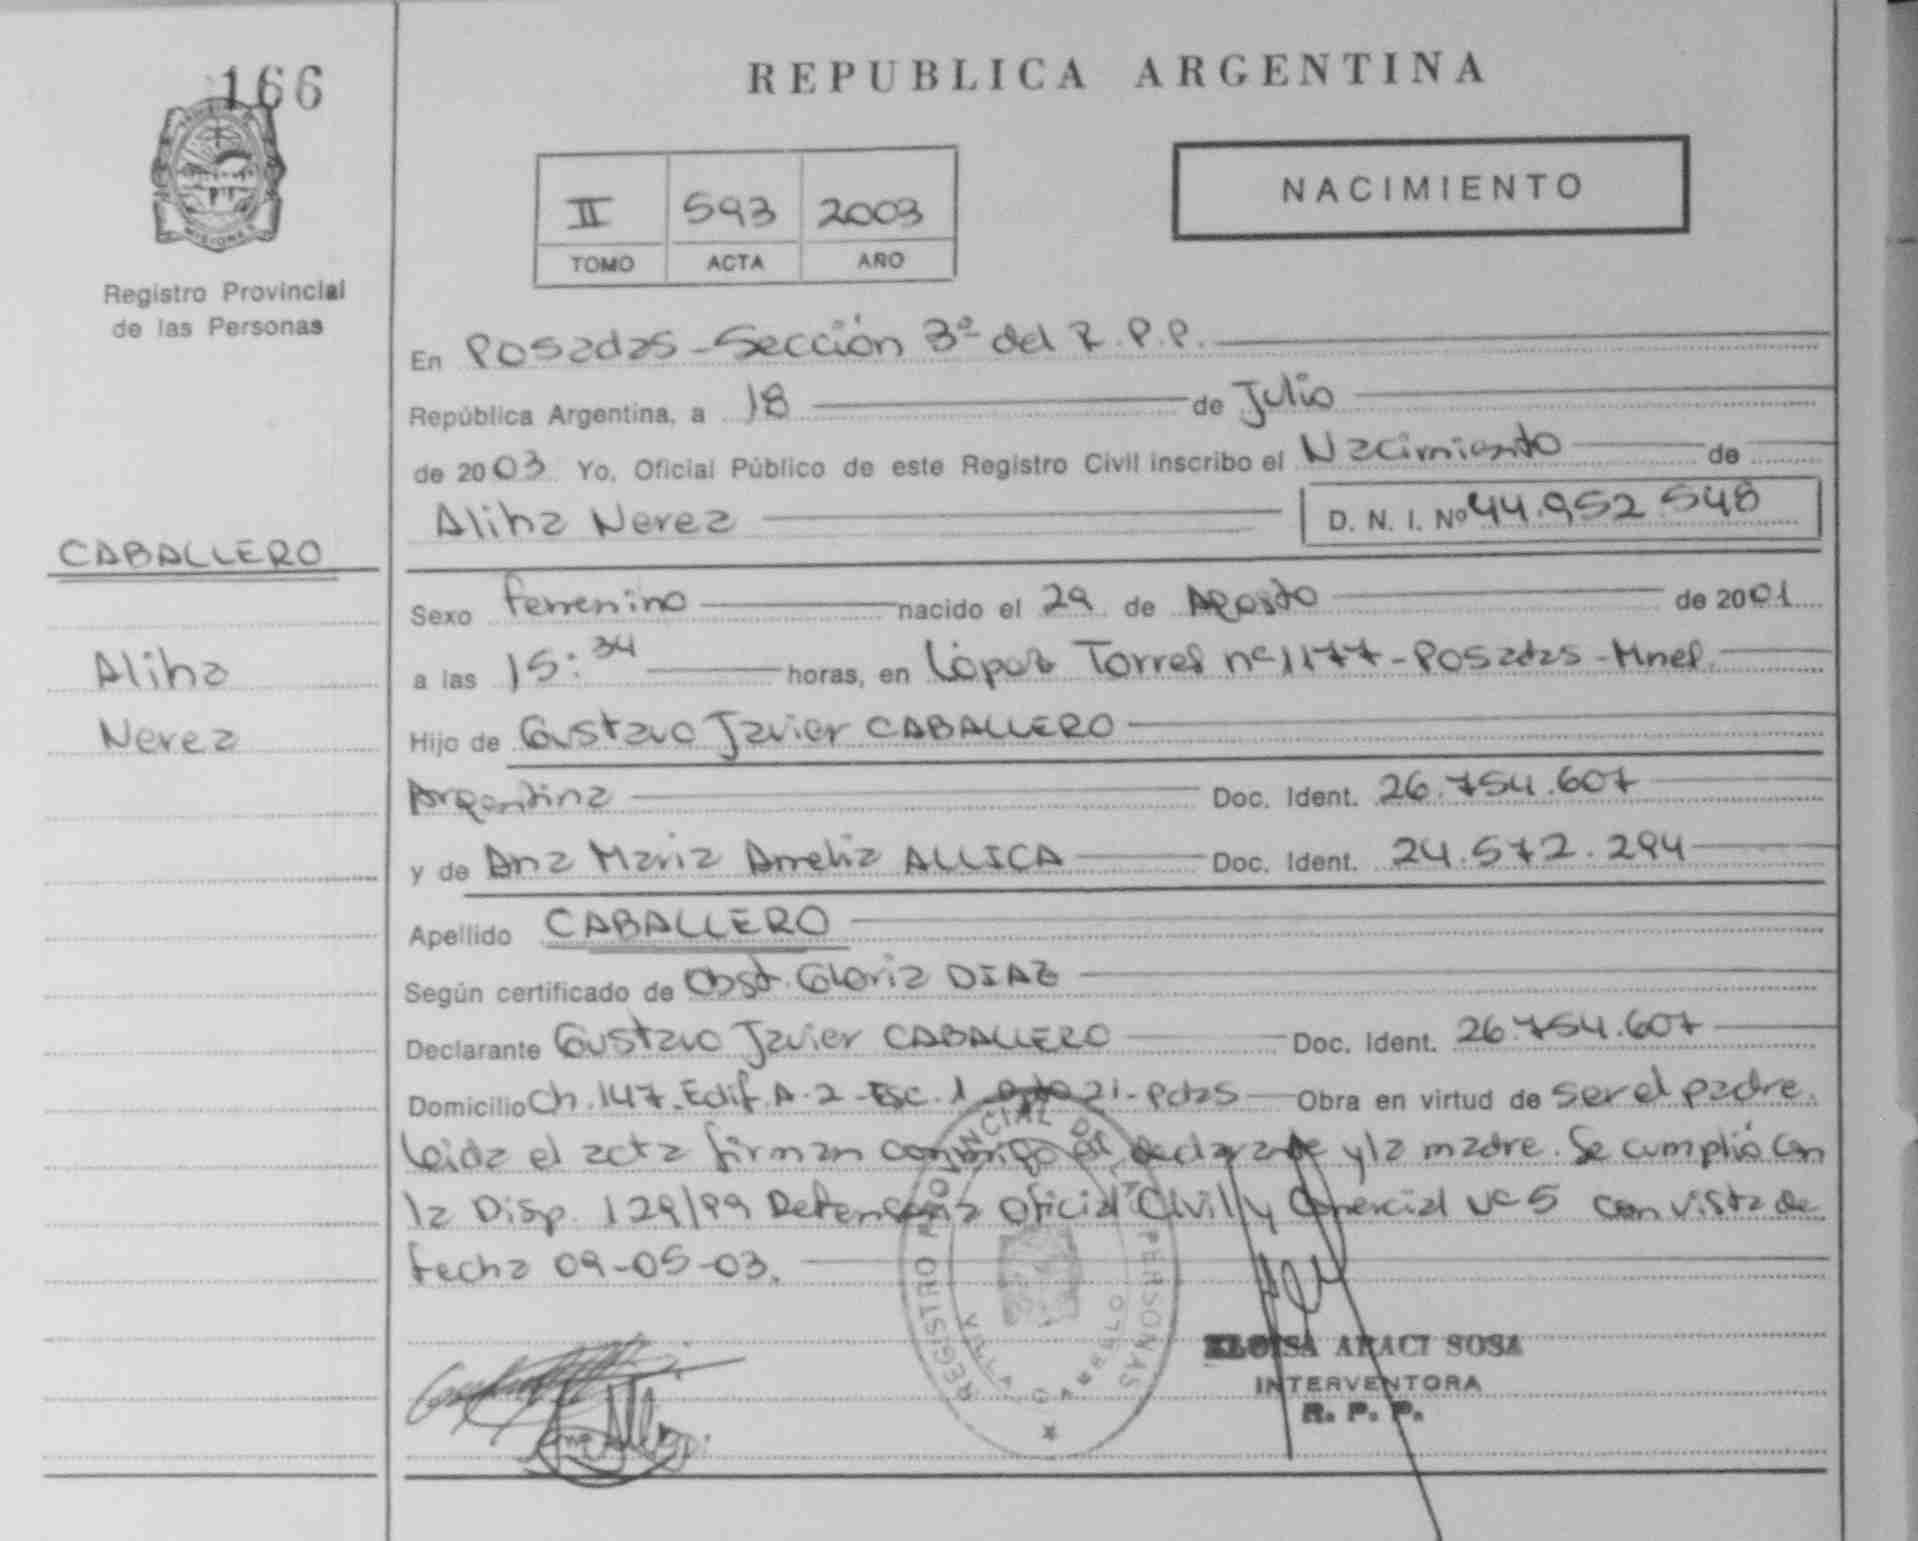 166
MISIONES
Registro Provincial
de las Personas
CABALLERO
Aliha
Nerea
REPUBLICA ARGENTINA
II 593 2003
TOMO ACTA AÑO
NACIMIENTO
En Posadas - Sección 3º del R.P.P.
República Argentina, a 18 de Julio
de 2003 Yo, Oficial Público de este Registro Civil inscribo el Nacimiento de
Aliha Nerea D. N. I. Nº 44.952.548
Sexo Femenino nacido el 29 de Agosto de 2001
a las 15:34 horas, en López Torres nº 1177 - Posadas - Mnes.
Hijo de Gustavo Javier CABALLERO
Argentina Doc. Ident. 26.754.607
y de Ana Maria Amelia ALLICA Doc. Ident. 24.572.294
Apellido CABALLERO
Según certificado de Obst. Gloria DIAZ
Declarante Gustavo Javier CABALLERO Doc. Ident. 26.754.607
Domicilio Ch. 147. Edif. A-2 - Esc. 1 21 - Pdas Obra en virtud de ser el padre.
Leida el acta firman conmigo el declarante y la madre. Se cumplió con
la Disp. 129/99 Defensoria Oficial Civil y Comercial Nº 5 con vista de
fecha 09-05-03.
REGISTRO PROVINCIAL DE LAS PERSONAS
VILLA CABELLO
ELOISA ARACI SOSA
INTERVENTORA
R. P. P.